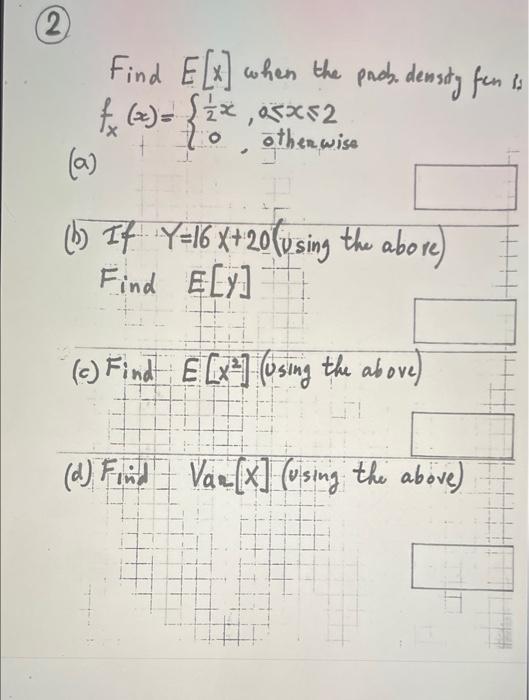 2
Find E[x] when the prob. density fcn is
fx(x)= { 1/2 x , 0≤x≤2
0 , otherwise
(a)
(b) If Y=16X+20 (using the above)
Find E[Y]
(c) Find E[X²] (using the above)
(d) Find Var[X] (using the above)